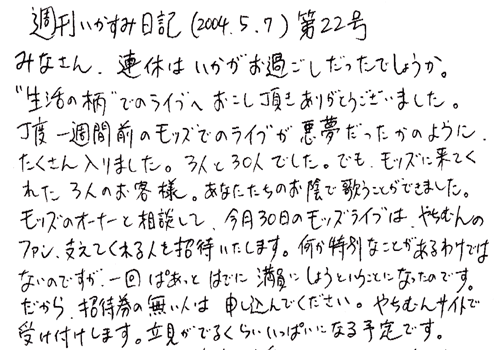 週刊いかすみ日記 (2004.5.7) 第22号
みなさん、連休はいかがお過ごしだったでしょうか。
"生活の柄"でのライブへおこし頂きありがとうございました。
丁度一週間前のモッズでのライブが悪夢だったかのように、
たくさん入りました。3人と30人でした。でも、モッズに来てく
れた3人のお客様。あなたたちのお陰で歌うことができました。
モッズのオーナーと相談して、今月30日のモッズライブは、やちむんの
ファン、支えてくれる人を招待いたします。何か特別なことがあるわけでは
ないのですが、一回ぱあっとはでに満員にしようということになったのです。
だから、招待券の無い人は申し込んでください。やちむんサイトで
受け付けします。立見がでるくらいいっぱいになる予定です。